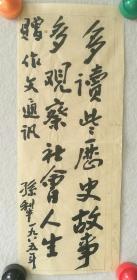 多讀些歷史故事
多觀察社會人生
贈作文通訊
孫犁一九八五年